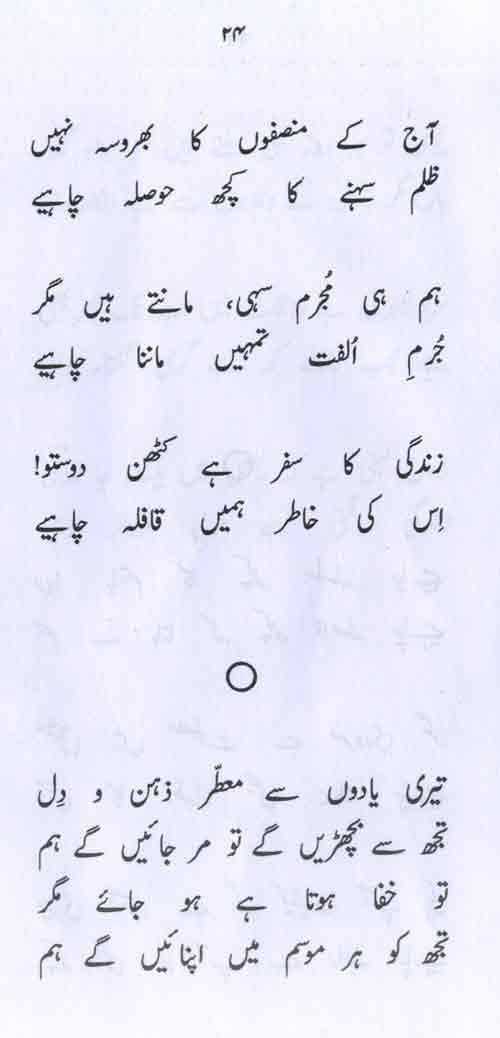 ۲۴
آج کے منصفوں کا بھروسہ نہیں
ظلم سہنے کا کچھ حوصلہ چاہیے
ہم ہی مُجرم سہی، مانتے ہیں مگر
جُرمِ اُلفت تمہیں ماننا چاہیے
زندگی کا سفر ہے کٹھن دوستو!
اِس کی خاطر ہمیں قافلہ چاہیے
تیری یادوں سے معطّر ذہن و دِل
تجھ سے بچھڑیں گے تو مر جائیں گے ہم
تو خفا ہوتا ہے ہو جائے مگر
تجھ کو ہر موسم میں اپنائیں گے ہم